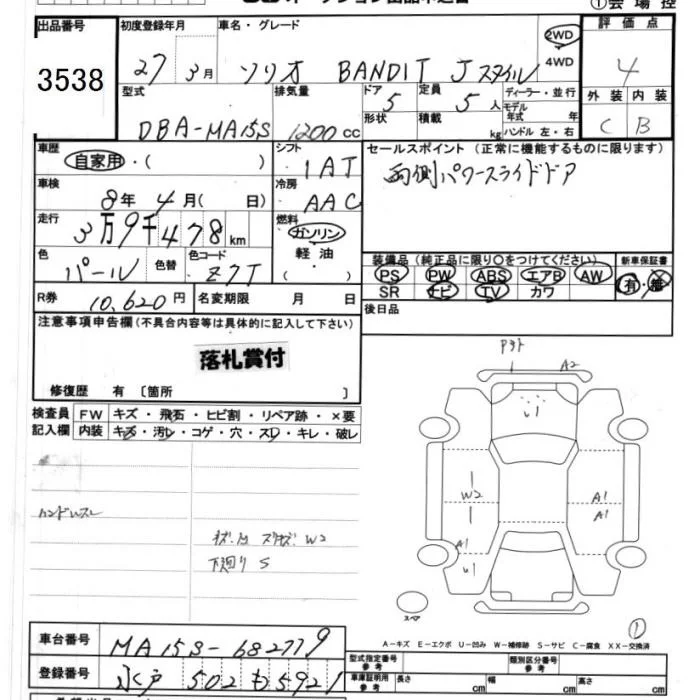 ①会場控
出品番号 3538
初度登録年月 27年 3月
車名・グレード ソリオ BANDIT Jスタイル
2WD
4WD
評価点 4
外装 C 内装 B
型式 DBA-MA15S
排気量 1200 cc
ドア 5
形状
定員 5 人
積載 kg
ディーラー・並行
モデル年式 年
ハンドル 左・右
車歴 自家用・( )
シフト IAT
車検 8年 4月( 日)
冷房 AAC
走行 3万9千478km
燃料 ガソリン
軽油
( )
色 パール 色替
色コード Z7T
R券 10,620円
名変期限 月 日
セールスポイント(正常に機能するものに限ります)
両側パワースライドドア
装備品(純正品に限り○をつけてください)
PS PW ABS エアB AW
SR ナビ TV カワ
新車保証書
有・無
後日品
注意事項申告欄(不具合内容等は具体的に記入して下さい)
落札賞付
修復歴 有〔箇所 〕
検査員記入欄
FW キズ・飛石・ヒビ割・リペア跡・×要
内装 キズ・汚レ・コゲ・穴・スレ・キレ・破レ
ハンドルスレ
下廻り S
A2
W2
A1
A1
A1
U1
スペア
①
A-キズ E-エクボ U-凹み W-補修跡 S-サビ C-腐食 XX-交換済
車台番号 MA15S-682779
登録番号 水戸 502 も 5921
型式指定番号
類別区分番号
車庫証明用参考
長さ cm 幅 cm 高さ cm